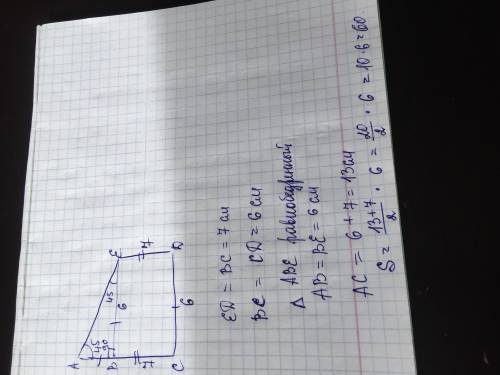 A
45
90
B
45
E
6
7
7
C
6
D
ED = BC = 7 см
BE = CD = 6 см
Δ ABE равнобедренный
AB = BE = 6 см
AC = 6 + 7 = 13 см
S = 13+7/2 · 6 = 20/2 · 6 = 10·6 = 60.